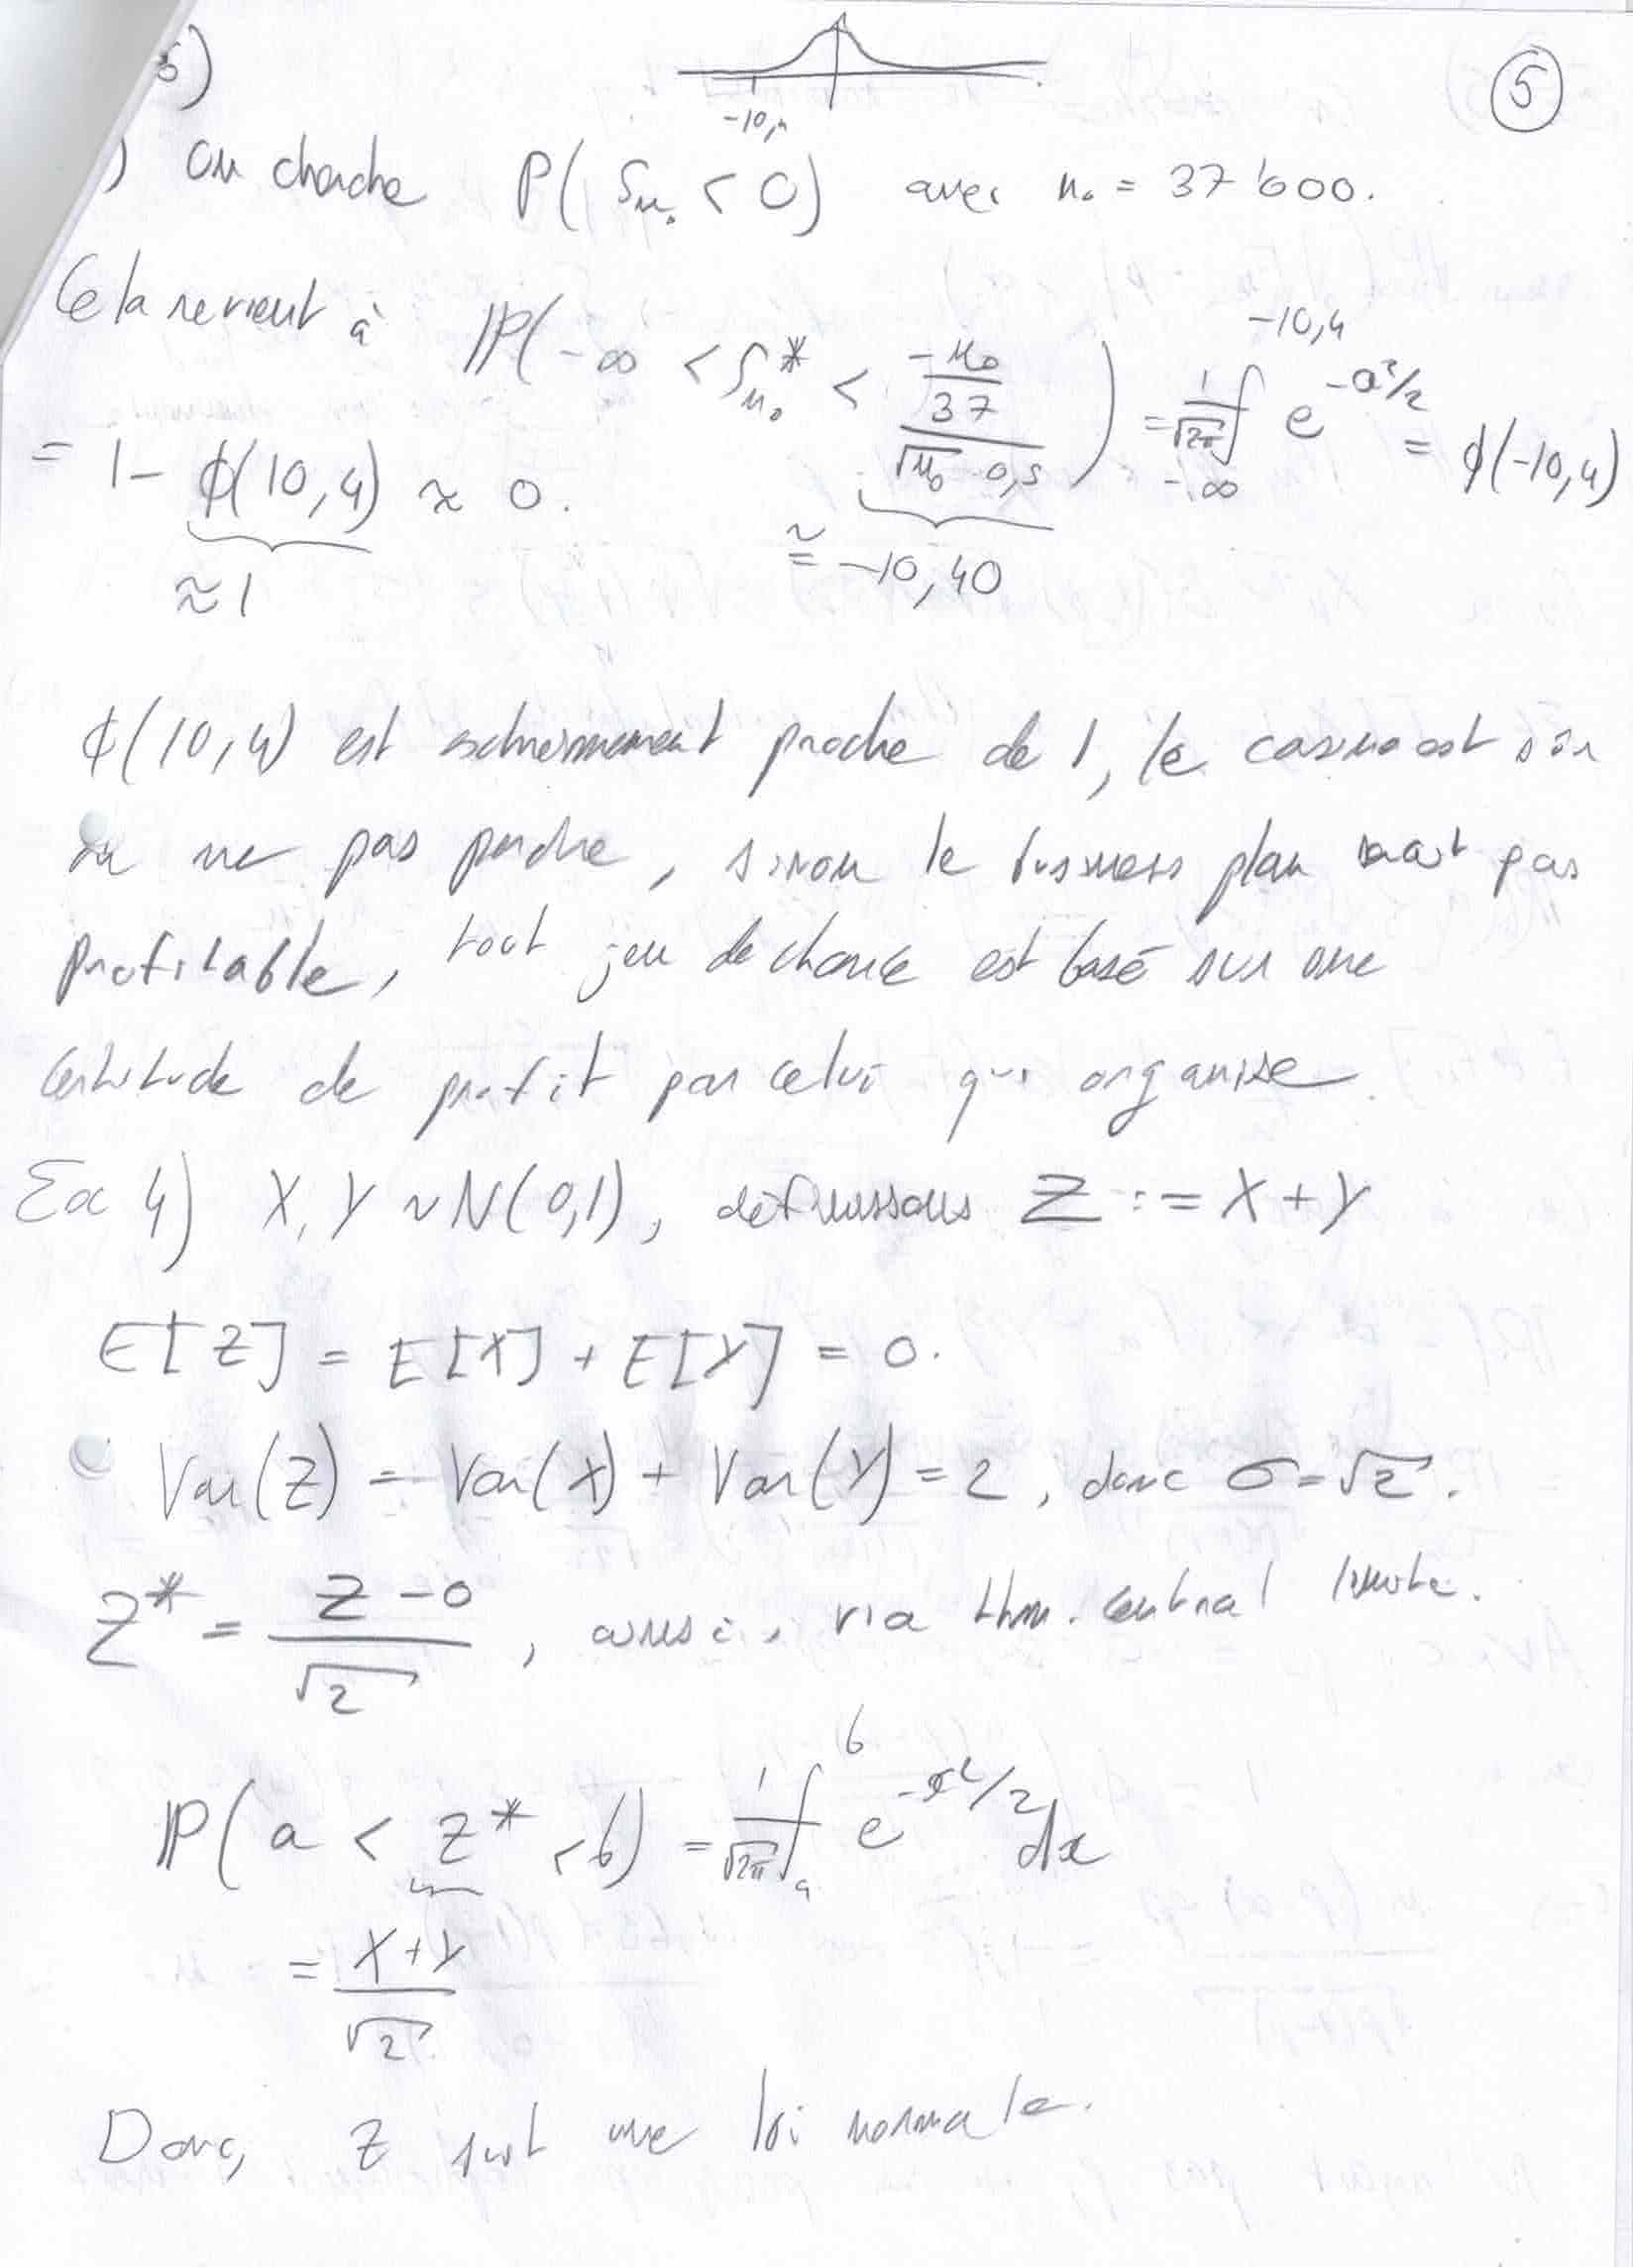 5)
⑤
-10,4
) On cherche P( Sn₀ < 0) avec n₀ = 37'600.
Cela revient à ℙ(-∞ < S*n₀ < (-n₀/37)/(√n₀ · 0,5)) = 1/√2π ∫_{-∞}^{-10,4} e^{-a²/2} = ϕ(-10,4)
= 1 - ϕ(10,4) ≈ 0.
≈ 1
≅ -10,40
ϕ(10,4) est extrêmement proche de 1, le casino est sûr
de ne pas perdre, sinon le business plan serait pas
profitable, tout jeu de chance est basé sur une
certitude de profit par celui qui organise.
Ex 4) X, Y ~ N(0,1), définissons Z := X + Y
E[Z] = E[X] + E[Y] = 0.
Var(Z) = Var(X) + Var(Y) = 2, donc σ = √2.
Z* = (Z - 0)/√2, ainsi, via thm. central limite.
ℙ(a < Z* < b) = 1/√2π ∫_a^b e^{-x²/2} dx
= (X + Y)/√2
Donc, Z suit une loi normale.